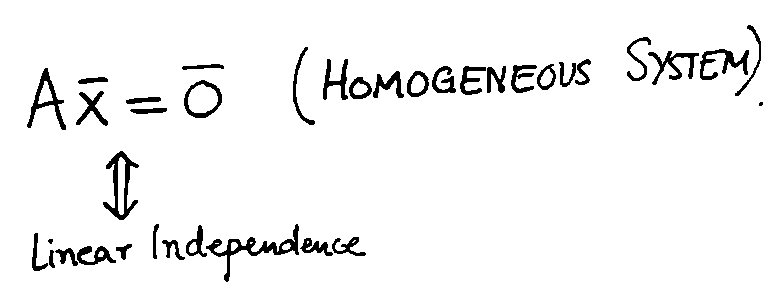 Ax̄ = 0̄ (HOMOGENEOUS SYSTEM).
⇕
Linear Independence